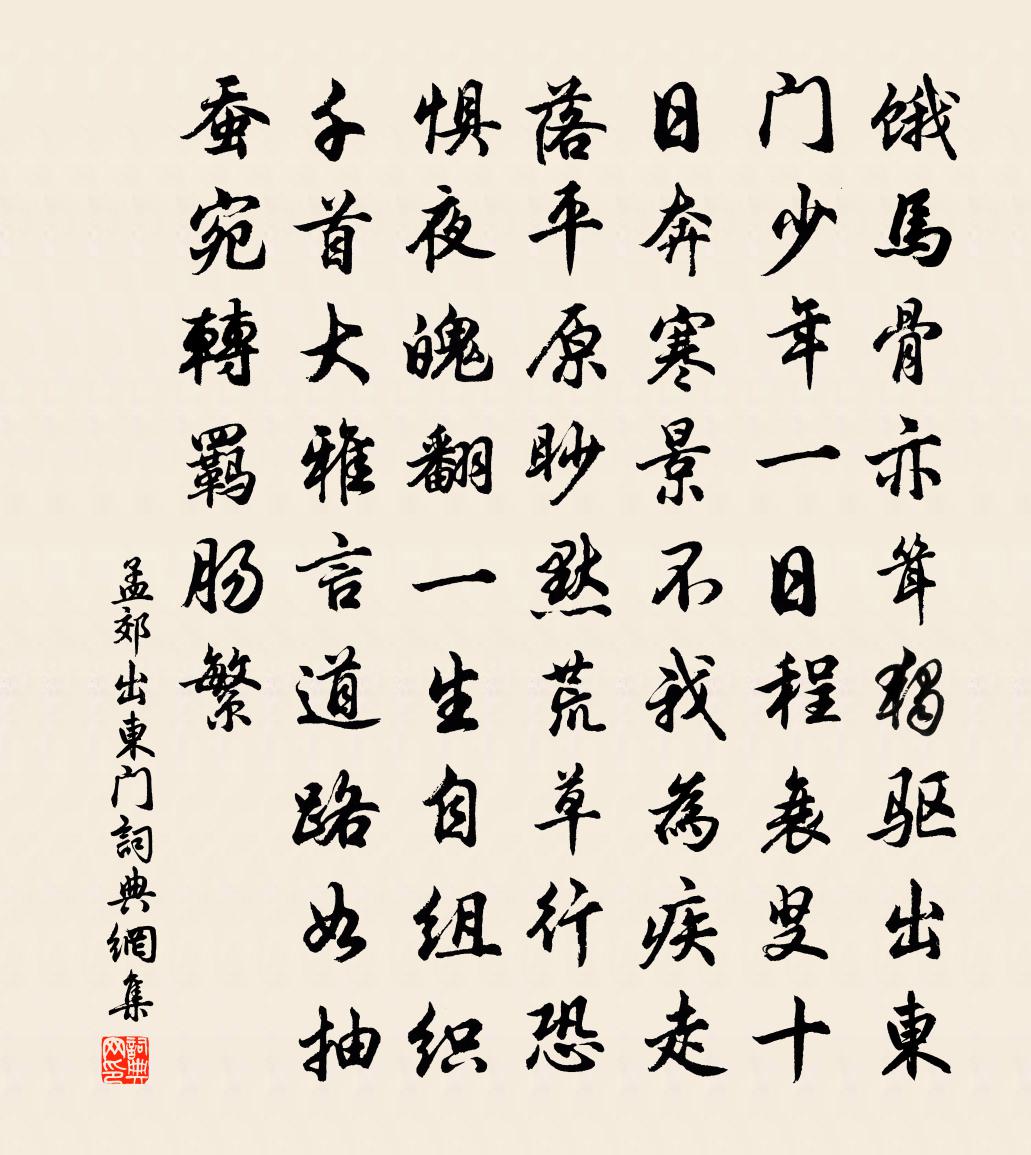 饿馬骨亦耸獨驱出東
门少年一日程衰叟十
日奔寒景不我為疾走
落平原眇默荒草行恐
惧夜魄翻一生自组织
千首大雅言道路如抽
蚕宛轉羈肠繁
孟郊出東门詞典網集
詞典网印